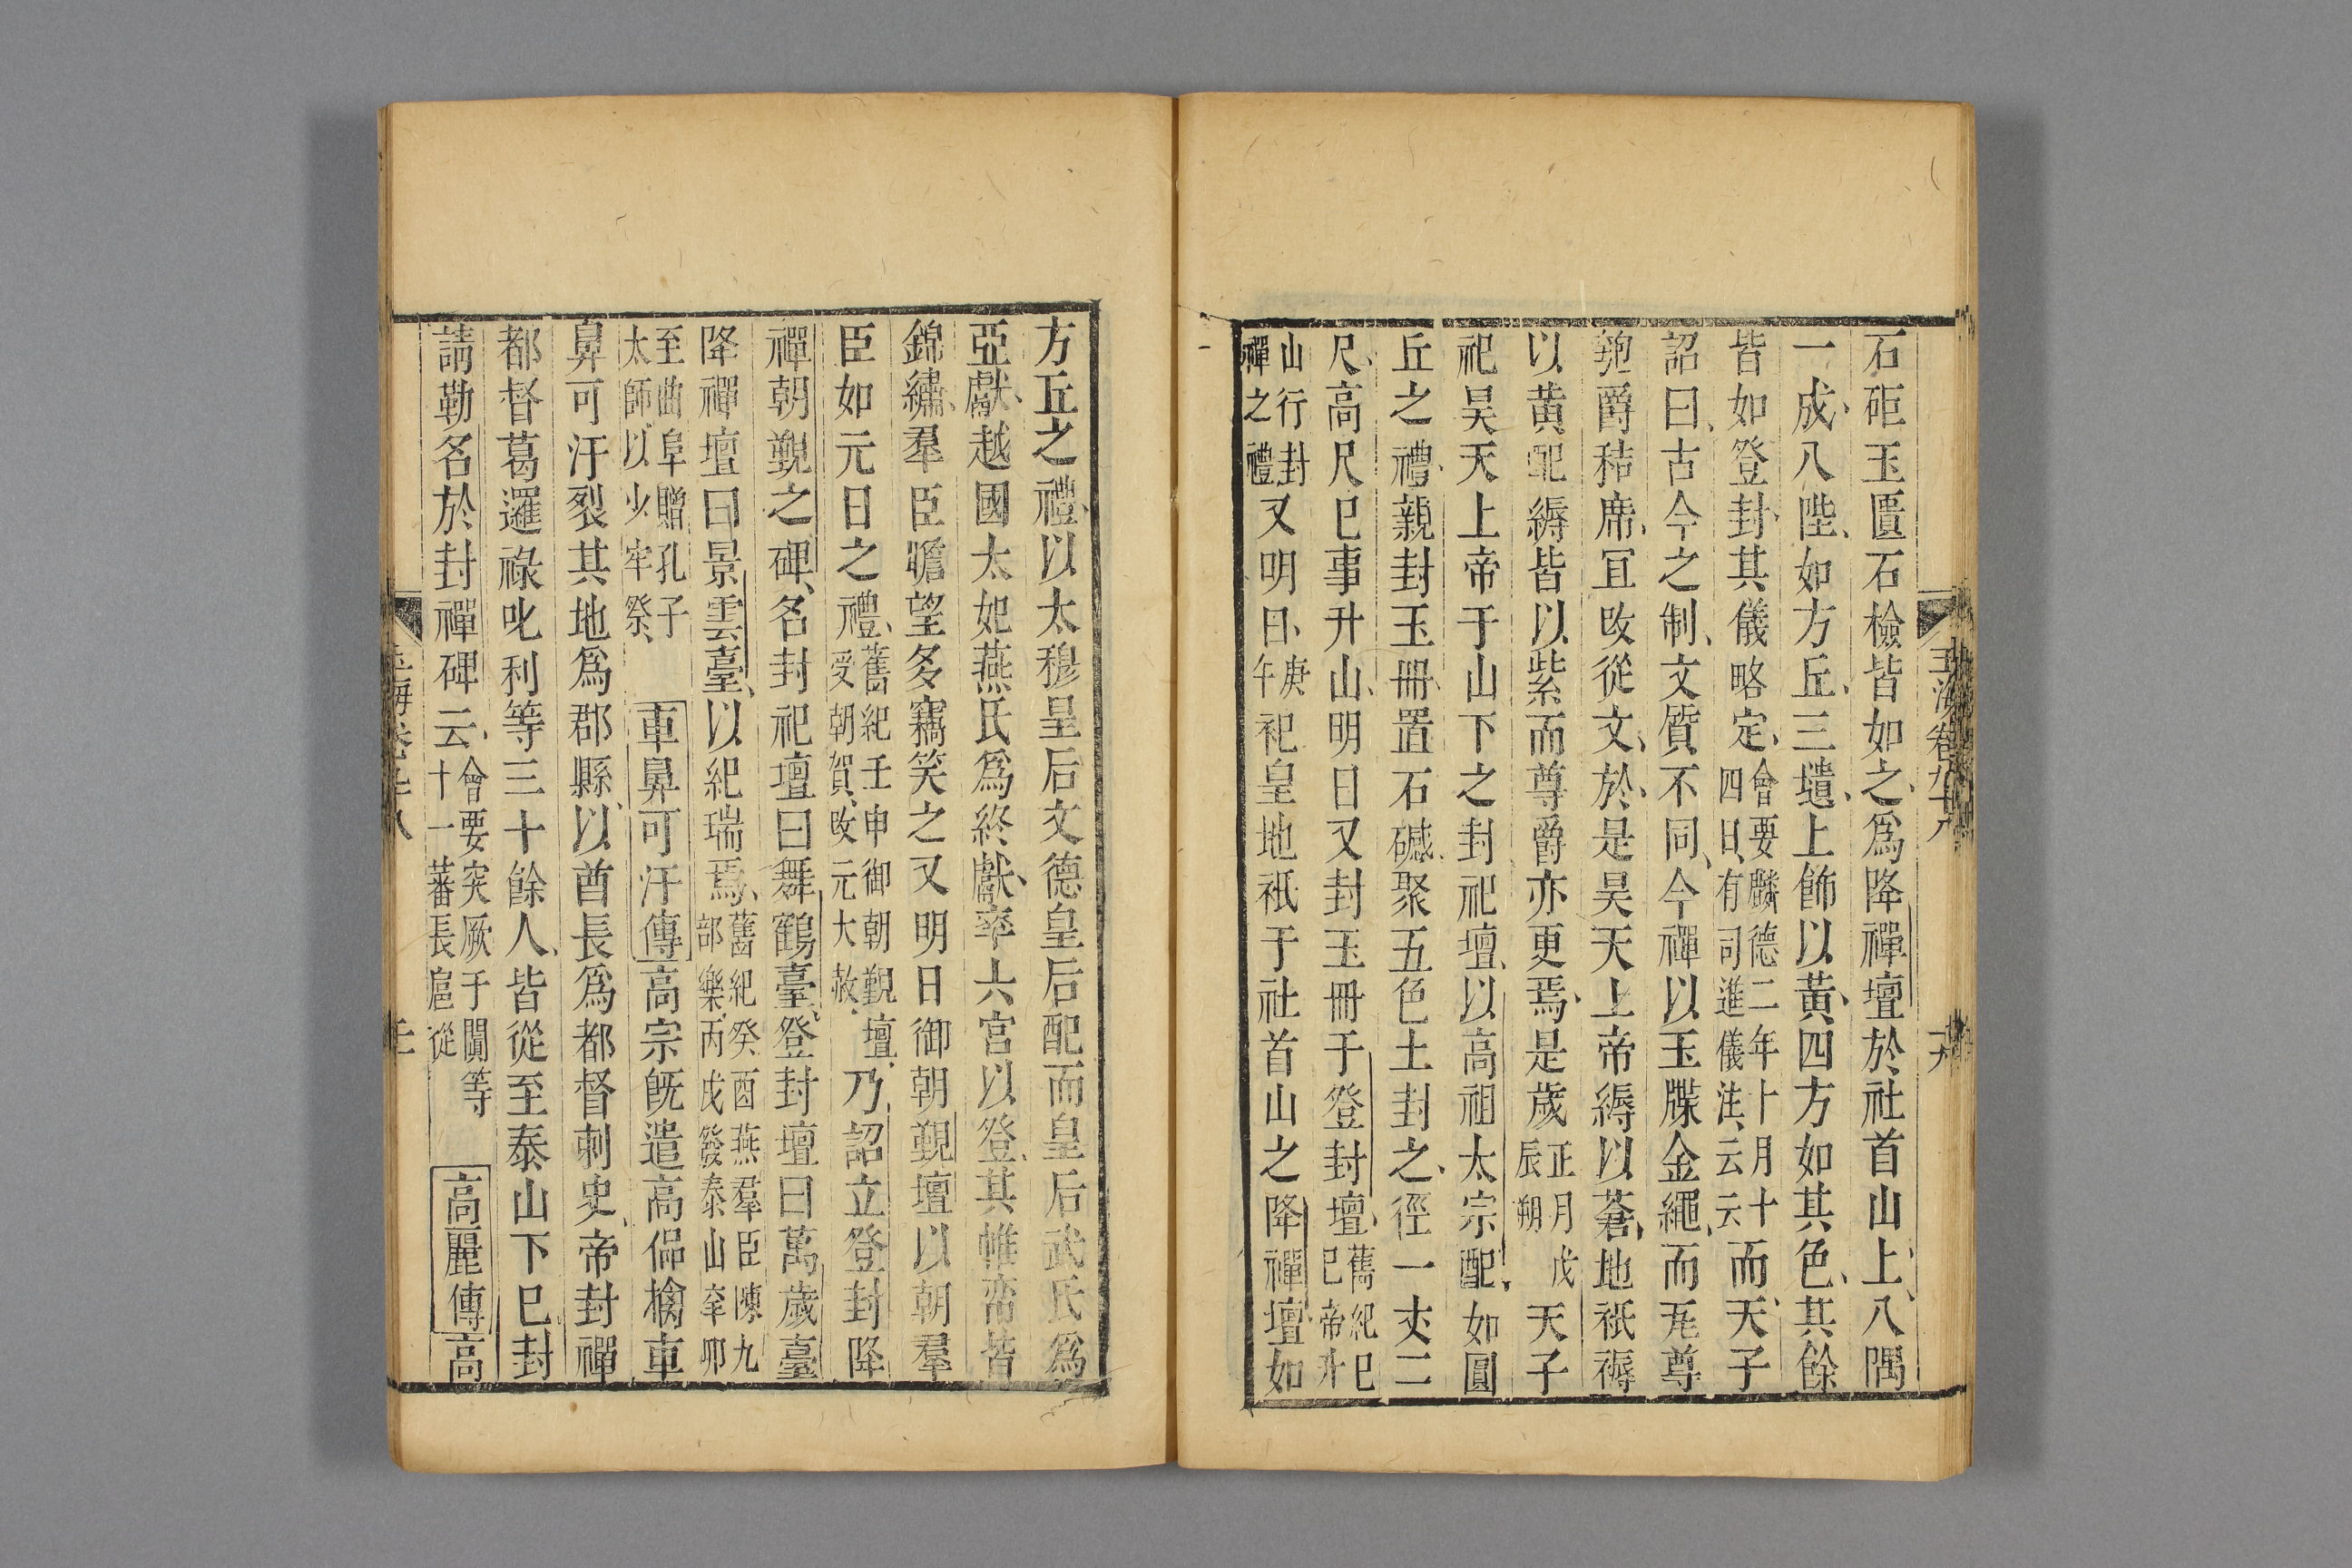 石砫玉匱石檢皆如之爲降禪壇於社首山上八隅
一成八陛如方丘三壝上飾以黃四方如其色其餘
皆如登封其儀略定會要麟德二年十月十四日有司進儀注云云而天子
詔曰古今之制文質不同今禪以玉牒金繩而𤬛尊
匏爵秸席宜攺從文於是昊天上帝褥以蒼地祇褥
以黃配褥皆以紫而尊爵亦更焉是歲正月戊辰朔天子
祀昊天上帝于山下之封祀壇以高祖太宗配如圓
丘之禮親封玉冊置石䃭聚五色土封之徑一丈二
尺高尺巳事升山明日又封玉冊于登封壇舊紀巳巳帝升
山行封禪之禮又明日庚午祀皇地祇于社首山之降禪壇如
方丘之禮以太穆皇后文德皇后配而皇后武氏爲
亞獻越國太妃燕氏爲終獻率六宮以登其帷帟皆
錦繡羣臣瞻望多竊笑之又明日御朝覲壇以朝羣
臣如元日之禮舊紀壬申御朝覲壇受朝賀攺元大赦乃詔立登封降
禪朝覲之碑名封祀壇曰舞鶴臺登封壇曰萬歲臺
降禪壇曰景雲臺以紀瑞焉舊紀癸酉燕羣臣陳九部樂丙戌發泰山辛卯
至曲阜贈孔子太師以少牢祭車鼻可汗傳高宗旣遣高偘檎車
鼻可汗裂其地爲郡縣以酋長爲都督刺史帝封禪
都督葛邏祿叱利等三十餘人皆從至泰山下巳封
請勒名於封禪碑云會要突厥于闐等十一蕃長扈從高麗傳高
玉海卷九十八
十九